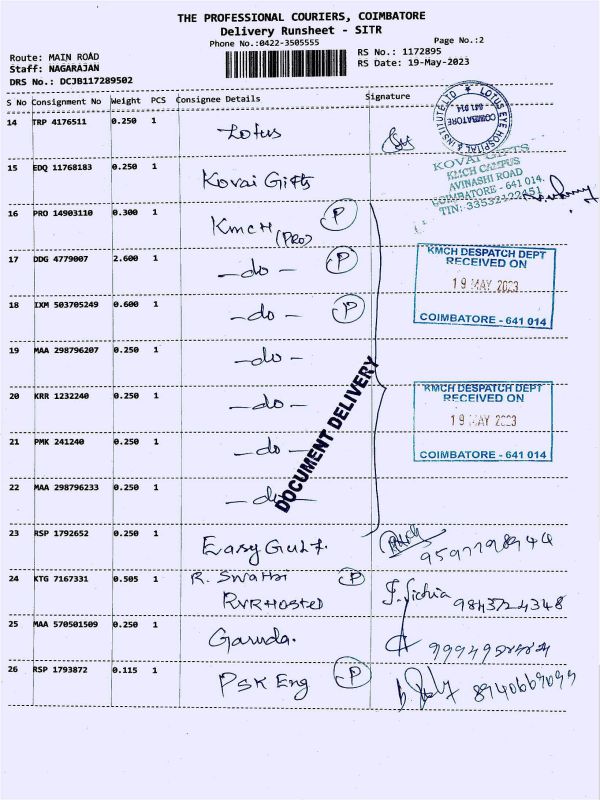 THE PROFESSIONAL COURIERS, COIMBATORE
Delivery Runsheet - SITR
Phone No.:0422-3505555
Page No.:2
Route: MAIN ROAD
RS No.: 1172895
Staff: NAGARAJAN
RS Date: 19-May-2023
DRS No.: DCJB117289502
S No Consignment No Weight PCS Consignee Details Signature
14 TRP 4176511 0.250 1 Lotus
LOTUS EYE HOSPITAL & INSTITUTE LTD
COIMBATORE
641 014
15 EDQ 11768183 0.250 1 Kovai Gifts
KOVAI GIFTS
KMCH CAMPUS
AVINASHI ROAD
COIMBATORE - 641 014.
TIN: 33532122451
16 PRO 14903110 0.300 1 KMCH (PRO) P
17 DDG 4779007 2.600 1 - do - P
KMCH DESPATCH DEPT
RECEIVED ON
19 MAY 2023
COIMBATORE - 641 014
18 IXM 503705249 0.600 1 - do - P
19 MAA 298796207 0.250 1 - do -
20 KRR 1232240 0.250 1 - do -
KMCH DESPATCH DEPT
RECEIVED ON
19 MAY 2023
COIMBATORE - 641 014
21 PMK 241240 0.250 1 - do -
22 MAA 298796233 0.250 1 - do -
DOCUMENT DELIVERY
23 RSP 1792652 0.250 1 Easy Gulf.
24 KTG 7167331 0.505 1 R. Swathi P
RVR Hosted
9843724348
25 MAA 570501509 0.250 1 Garuda.
26 RSP 1793872 0.115 1 PSK Eng P